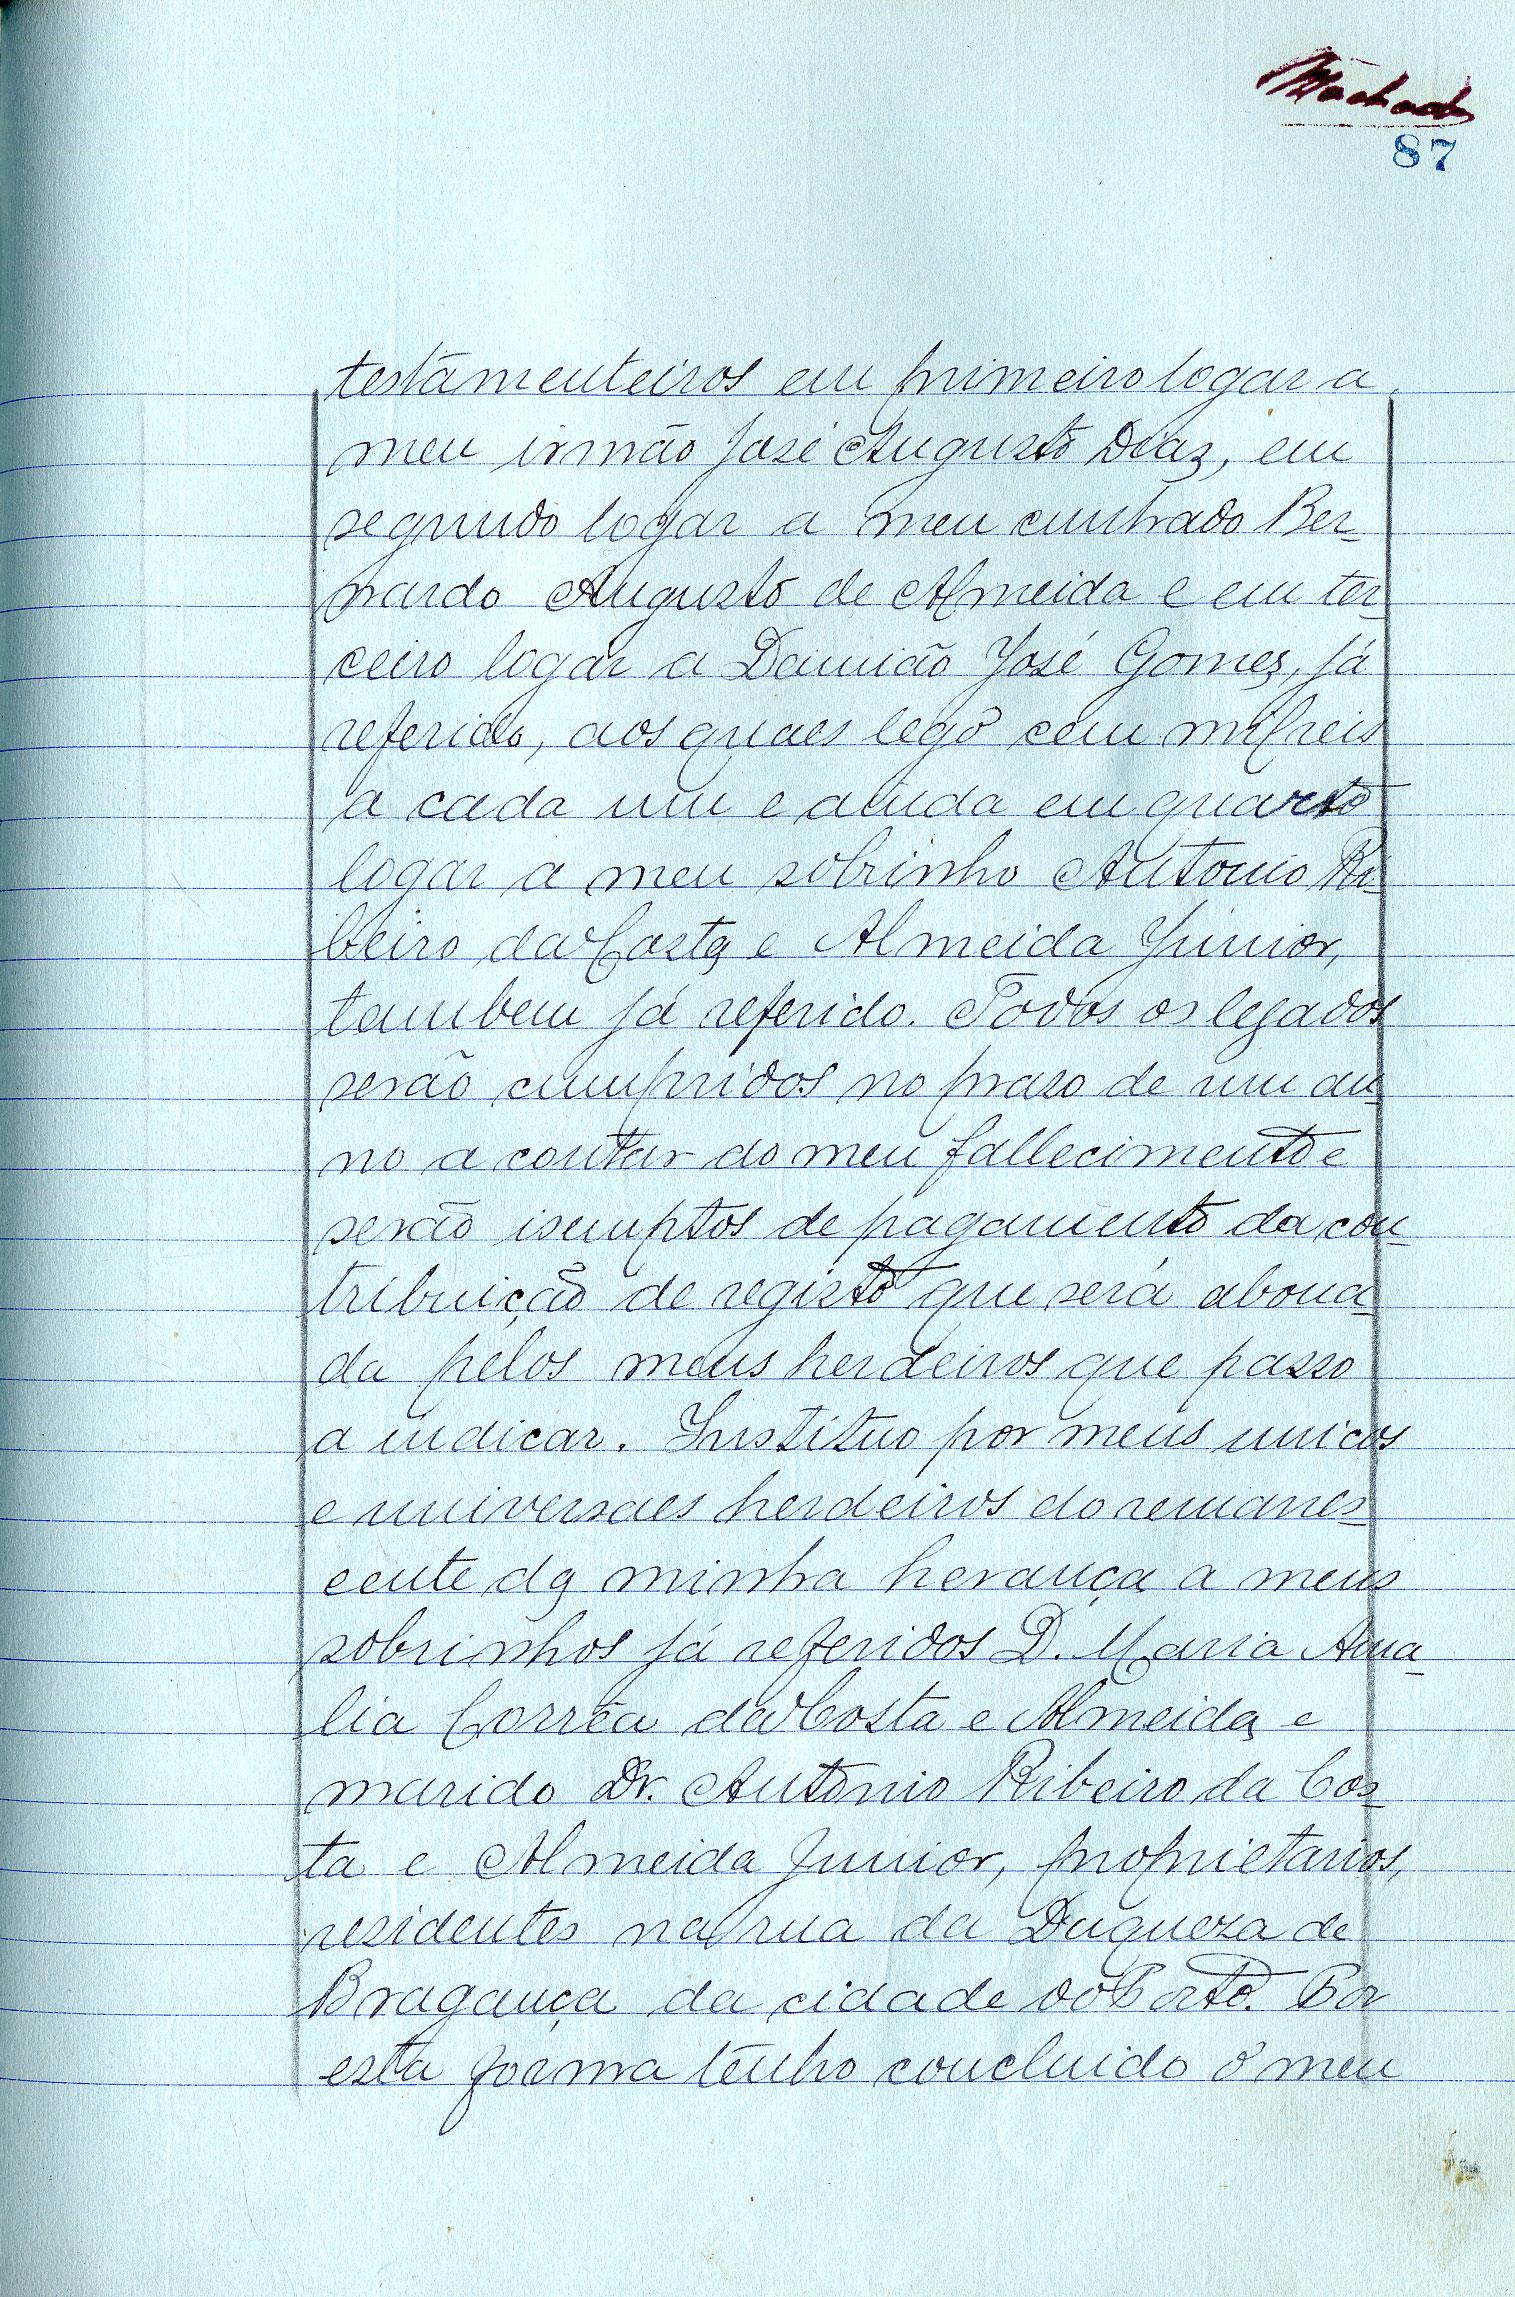 Machado
87
testamenteiros em primeiro logar a
meu irmão José Augusto Dias, em
segundo logar a meu cunhado Ber-
nardo Augusto de Almeida e em ter-
ceiro logar a Damião José Gomes, já
referido, aos quaes lego cem mil reis
a cada um e ainda em quarto
logar a meu sobrinho Antonio Ri-
beiro da Costa e Almeida Junior,
tambem já referido. Todos os legados
serão cumpridos no praso de um an-
no a contar do meu fallecimento e
serão isemptos de pagamento da con-
tribuição de registo que será abona-
da pelos meus herdeiros que passo
a indicar. Instituo por meus unicos
e universaes herdeiros do remanes-
cente da minha herança a meus
sobrinhos já referidos D. Maria Ama-
lia Corrêa da Costa e Almeida e
marido Dr. Antonio Ribeiro da Cos-
ta e Almeida Junior, proprietarios,
residentes na rua da Duqueza de
Bragança da cidade do Porto. Por
esta forma tenho concluido o meu